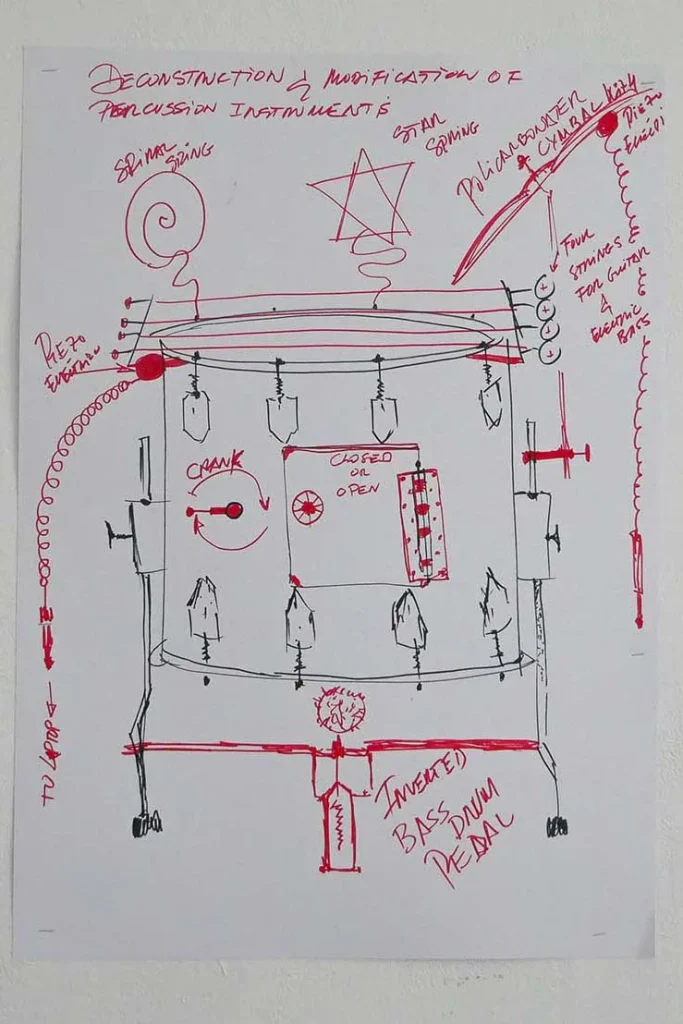 DECONSTRUCTION & MODIFICATION OF
PERCUSSION INSTRUMENTS
SPIRAL
SPRING
STAR
SPRING
POLICARBONATER
CYMBAL
PIEZO
FOUR
STRINGS
FOR GUITAR
&
ELECTRIC
BASS
PIEZO
CRANK
CLOSED
OR
OPEN
INVERTED
BASS DRUM
PEDAL